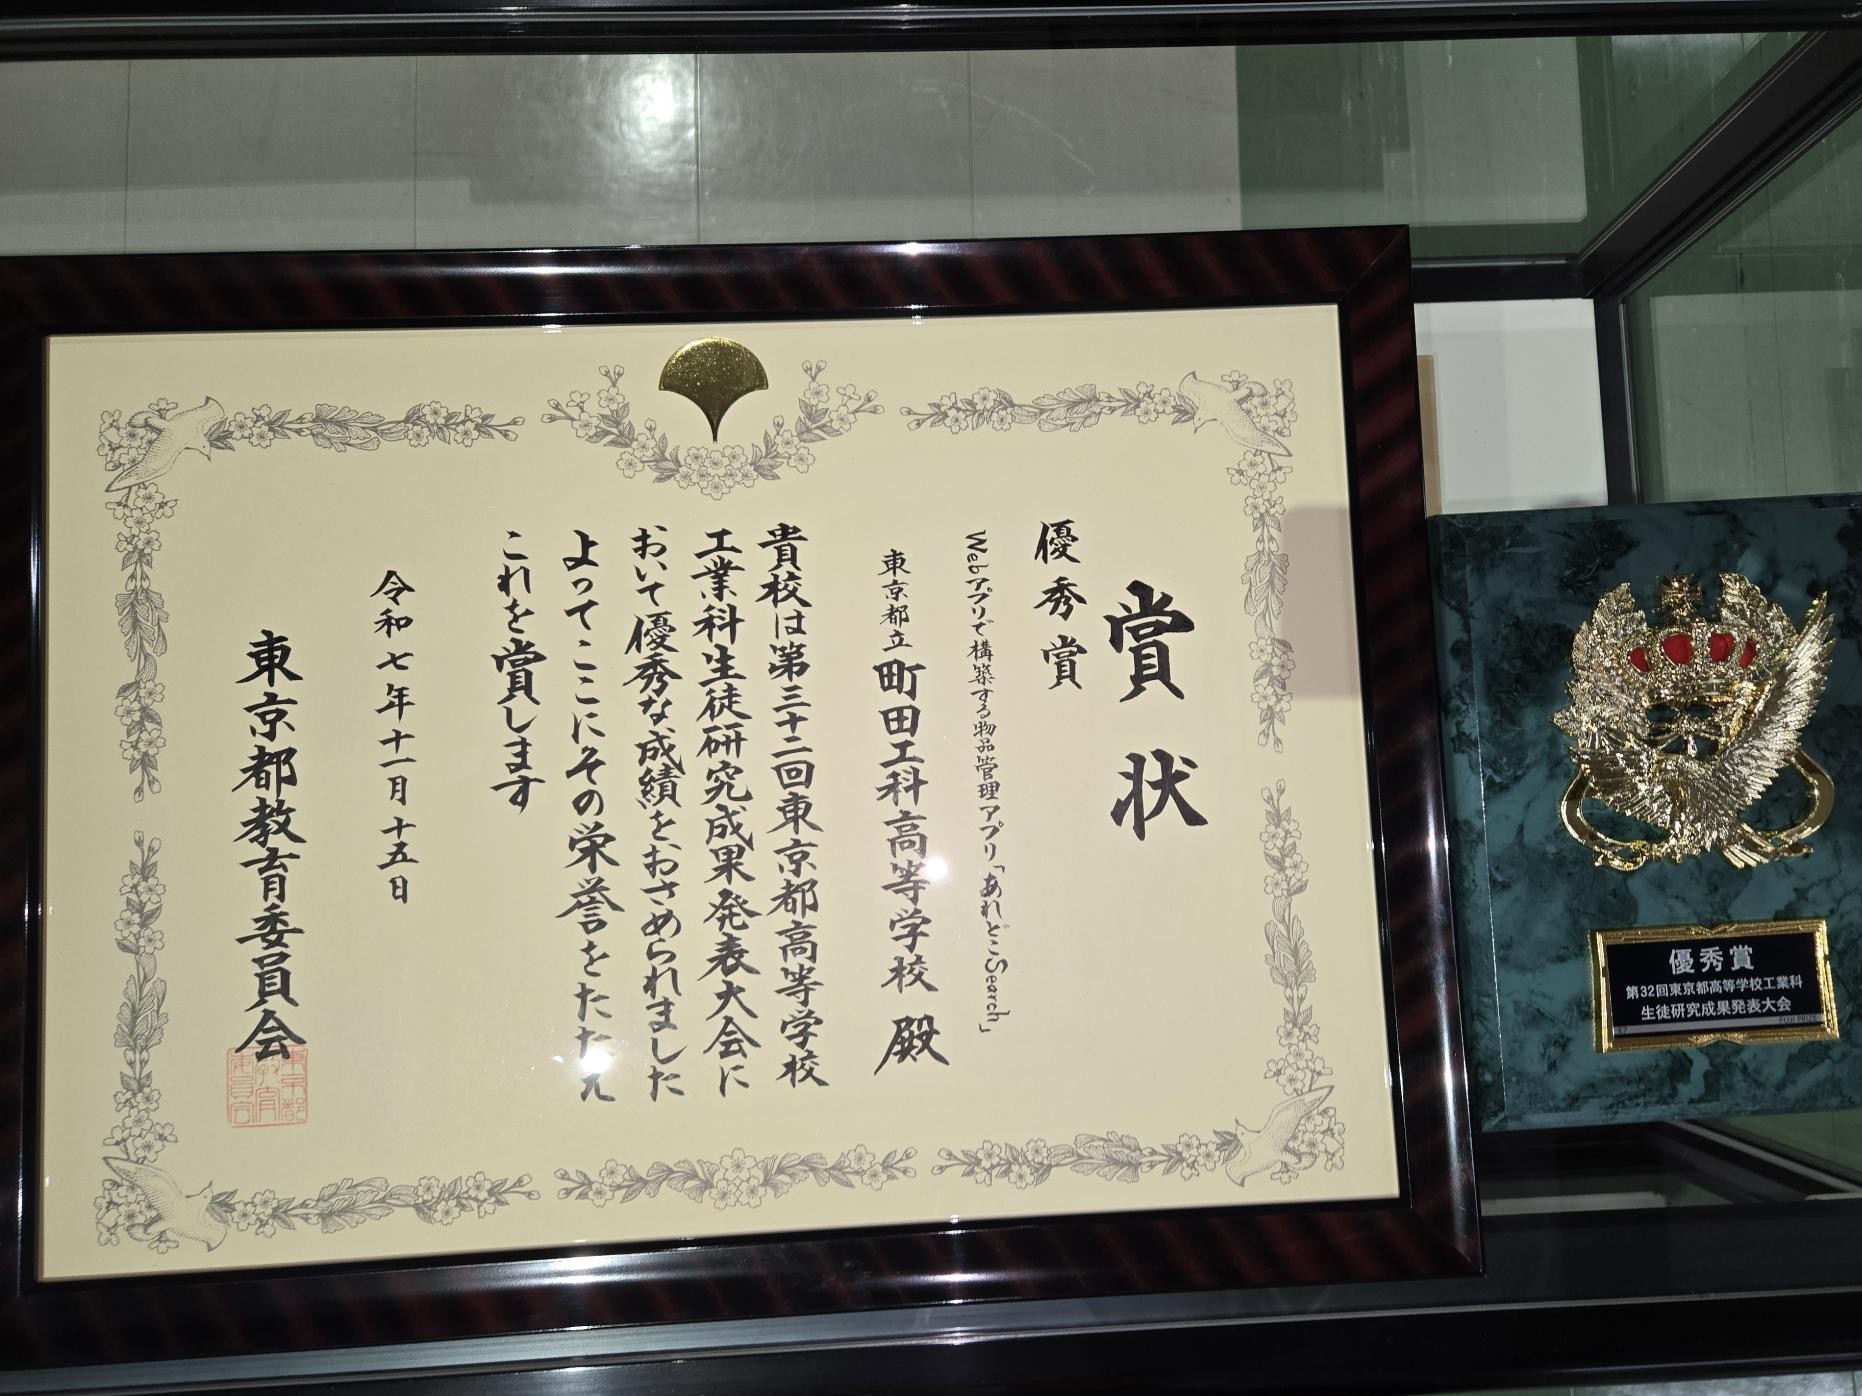 賞状
優秀賞
Webアプリで構築する物品管理アプリ「あれどこSearch」
東京都立 町田工科高等学校 殿
貴校は第三十二回東京都高等学校
工業科生徒研究成果発表大会に
おいて優秀な成績をおさめられました
よってここにその栄誉をたたえ
これを賞します
令和七年十一月十五日
東京都教育委員会
東京都教育委員会
優秀賞
第32回東京都高等学校工業科
生徒研究成果発表大会